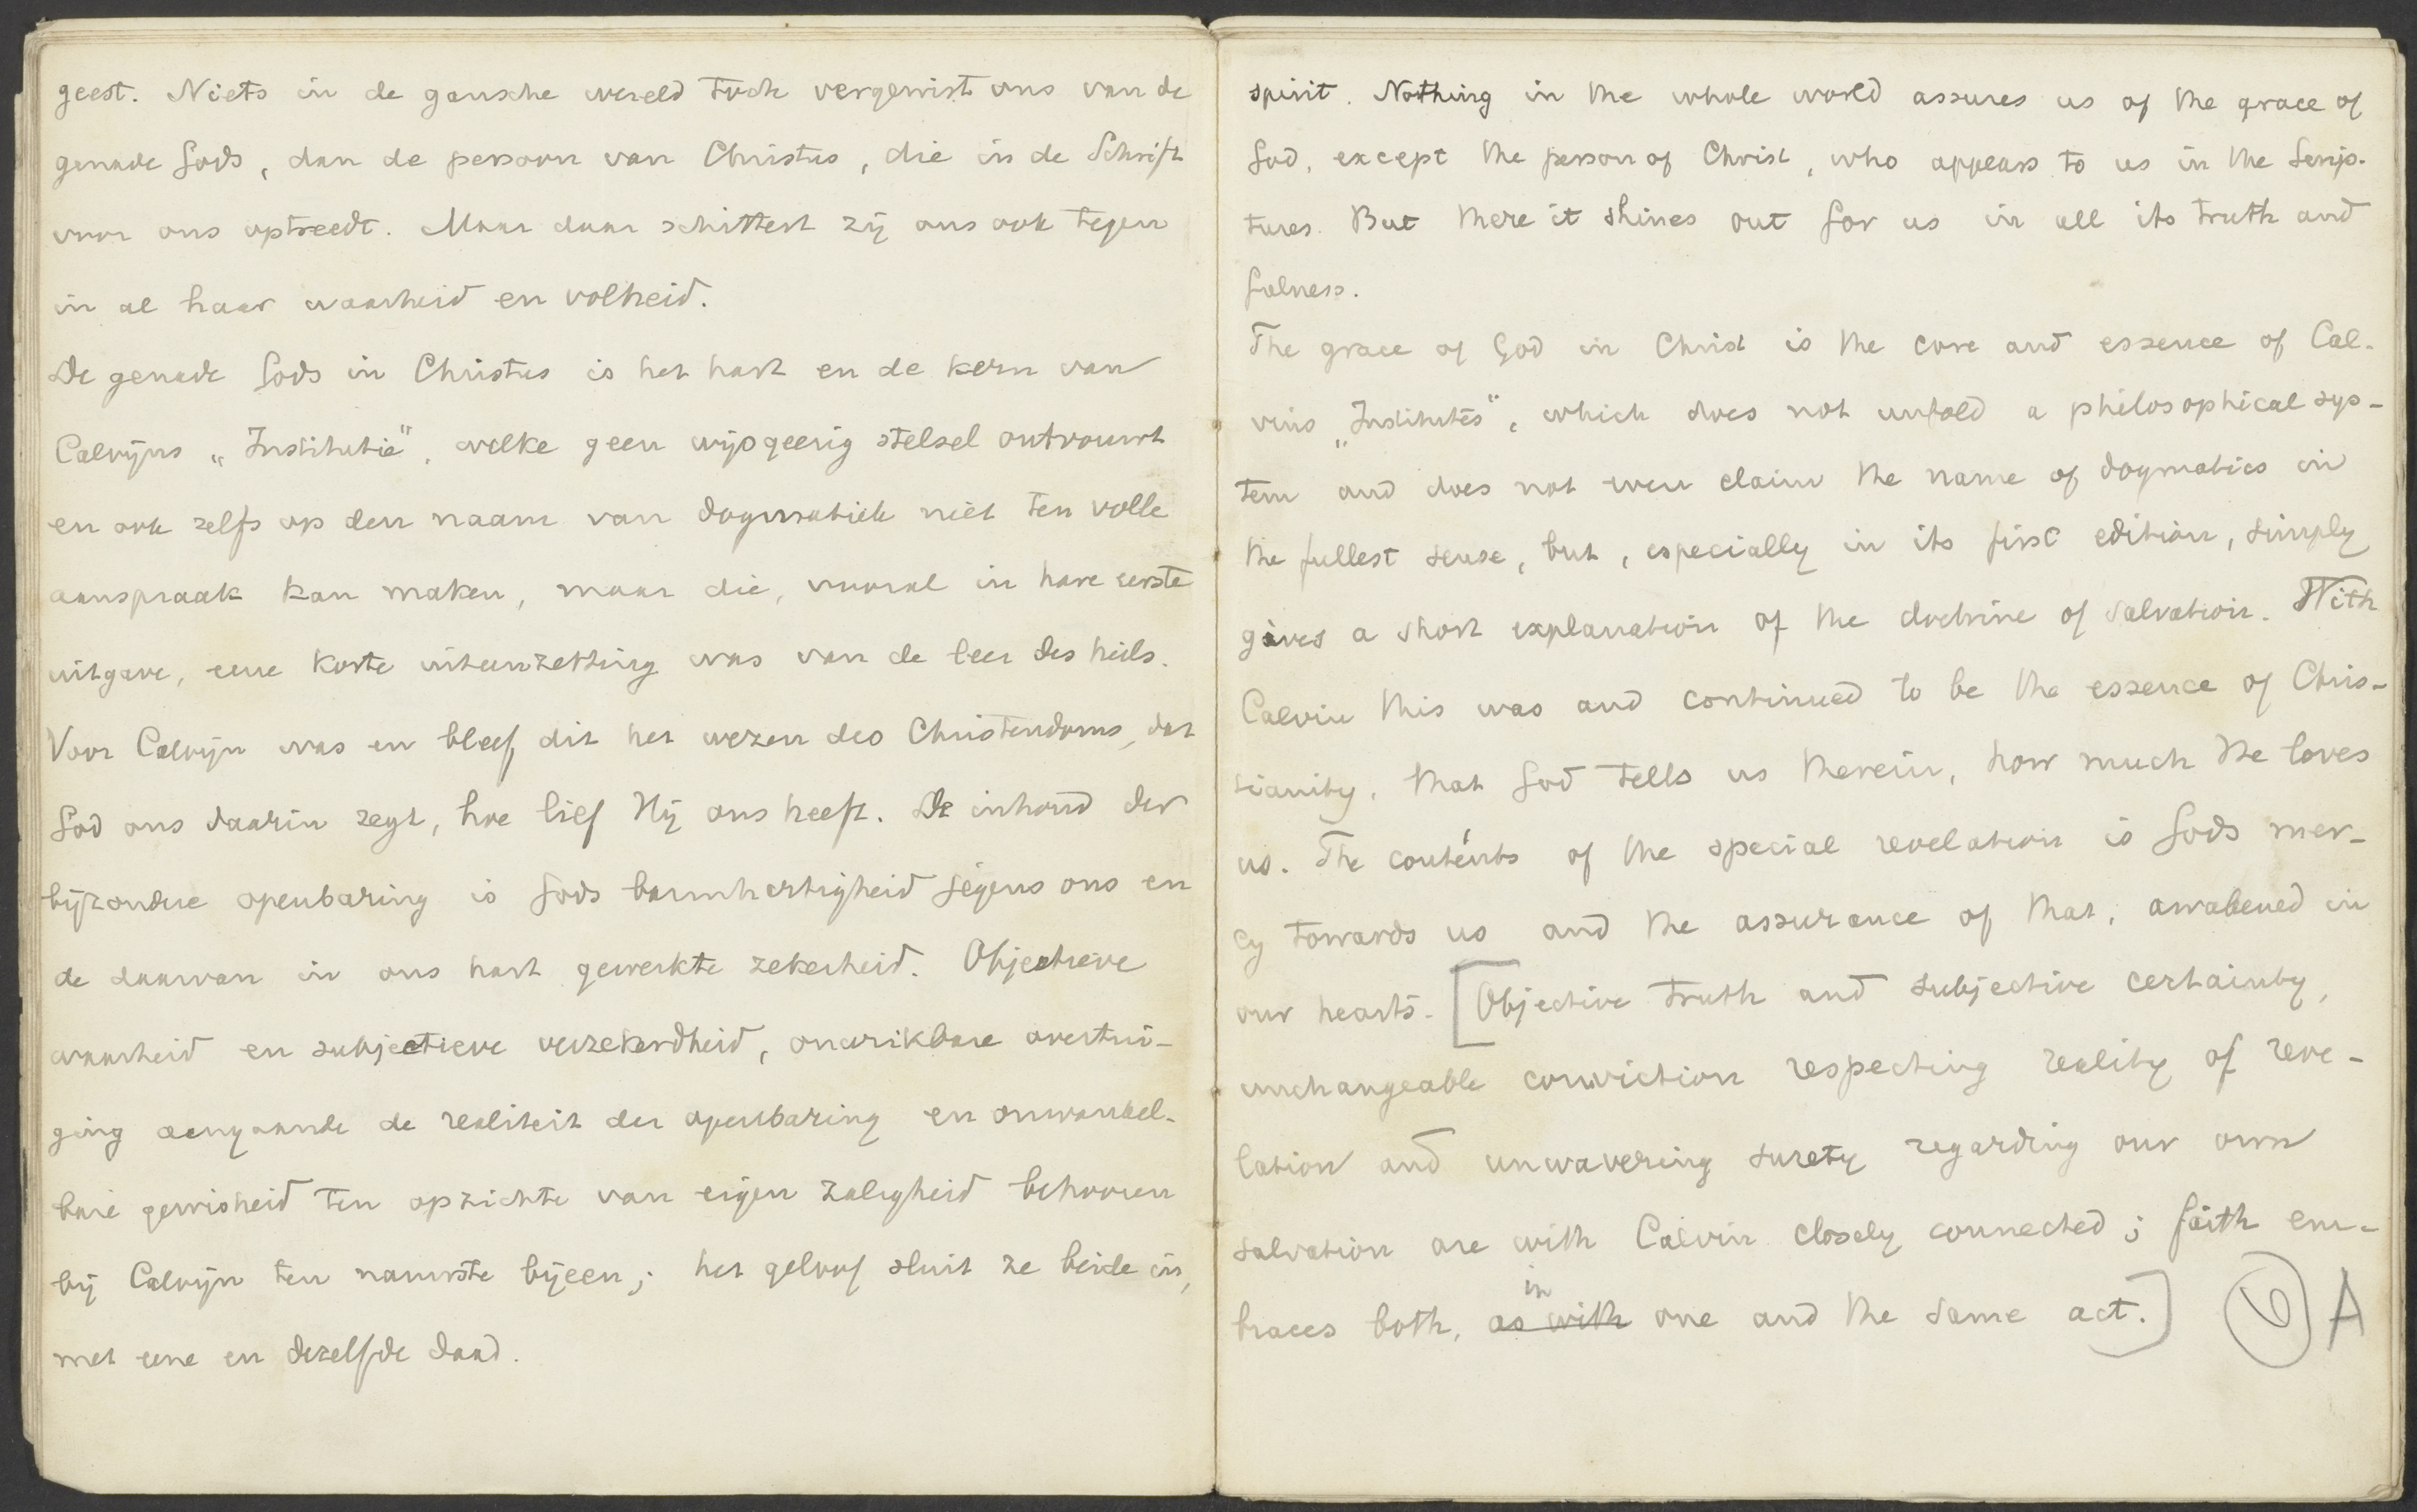 geest. Niets in de gansche wereld toch vergewist ons van de
genade Gods, dan de persoon van Christus, die in de Schrift
voor ons optreedt. Maar daar schittert zij ons ook tegen
in al haar waarheid en volheid.
De genade Gods in Christus is het hart en de kern van
Calvijns „Institutie", welke geen wijsgeerig stelsel ontvouwt
en ook zelfs op den naam van dogmatiek niet ten volle
aanspraak kan maken, maar die, vooral in hare eerste
uitgave, eene korte uiteenzetting was van de leer des heils.
Voor Calvijn was en bleef dit het wezen des Christendoms, dat
God ons daarin zegt, hoe lief Hij ons heeft. De inhoud der
bijzondere openbaring is Gods barmhartigheid jegens ons en
de daarvan in ons hart gewerkte zekerheid. Objectieve
waarheid en subjectieve verzekerdheid, onwrikbare overtui-
ging aangaande de realiteit der openbaring en onwankel-
bare gewisheid ten opzichte van eigen zaligheid behooren
bij Calvijn ten nauwste bijeen; het geloof sluit ze beide in,
met eene en dezelfde daad.
spirit. Nothing in the whole world assures us of the grace of
God, except the person of Christ, who appears to us in the Scrip-
tures. But there it shines out for us in all its truth and
fulness.
The grace of God in Christ is the core and essence of Cal-
vins „Institutes", which does not unfold a philosophical sys-
tem and does not even claim the name of dogmatics in
the fullest sense, but, especially in its first edition, simply
gives a short explanation of the doctrine of salvation. With
Calvin this was and continued to be the essence of Chris-
tianity, that God tells us therein, how much He loves
us. The contents of the special revelation is Gods mer-
cy towards us and the assurance of that, awakened in
our hearts. [Objective truth and subjective certainty,
unchangeable conviction respecting reality of reve-
lation and unwavering surety regarding our own
salvation are with Calvin closely connected; faith em-
in
braces both, as with one and the same act.] 6 A